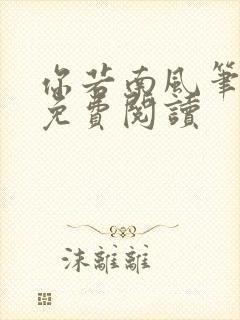 你若南風筆
免費閱讀
沫離離